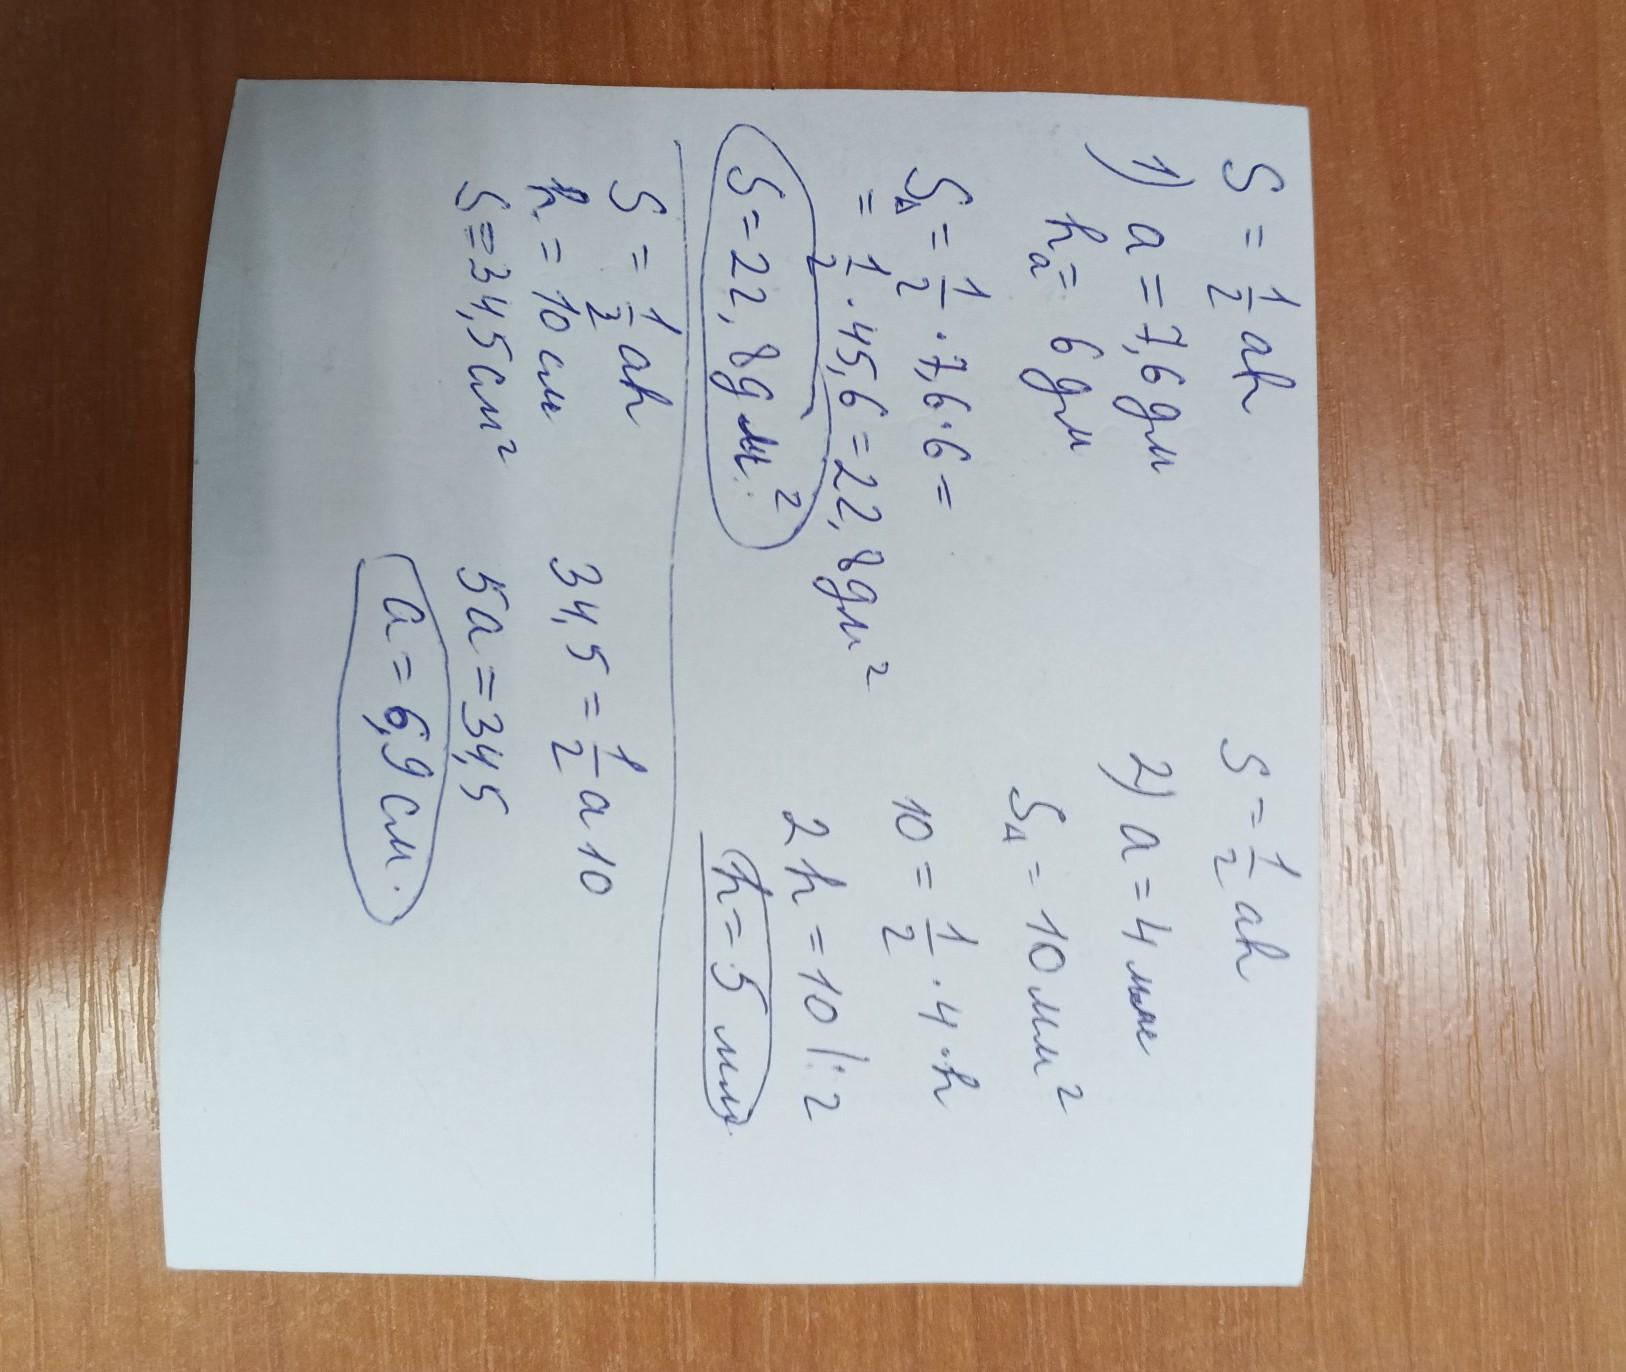 S = 1/2 ah
1) a = 7,6 дм
hₐ = 6 дм
S△ = 1/2 · 7,6 · 6 =
= 1/2 · 45,6 = 22,8 дм²
S = 22,8 дм²
S = 1/2 ah
2) a = 4 мм
S△ = 10 мм²
10 = 1/2 · 4 · h
2h = 10 |: 2
h = 5 мм
S = 1/2 ah
h = 10 см
S = 34,5 см²
34,5 = 1/2 a 10
5a = 34,5
a = 6,9 см.